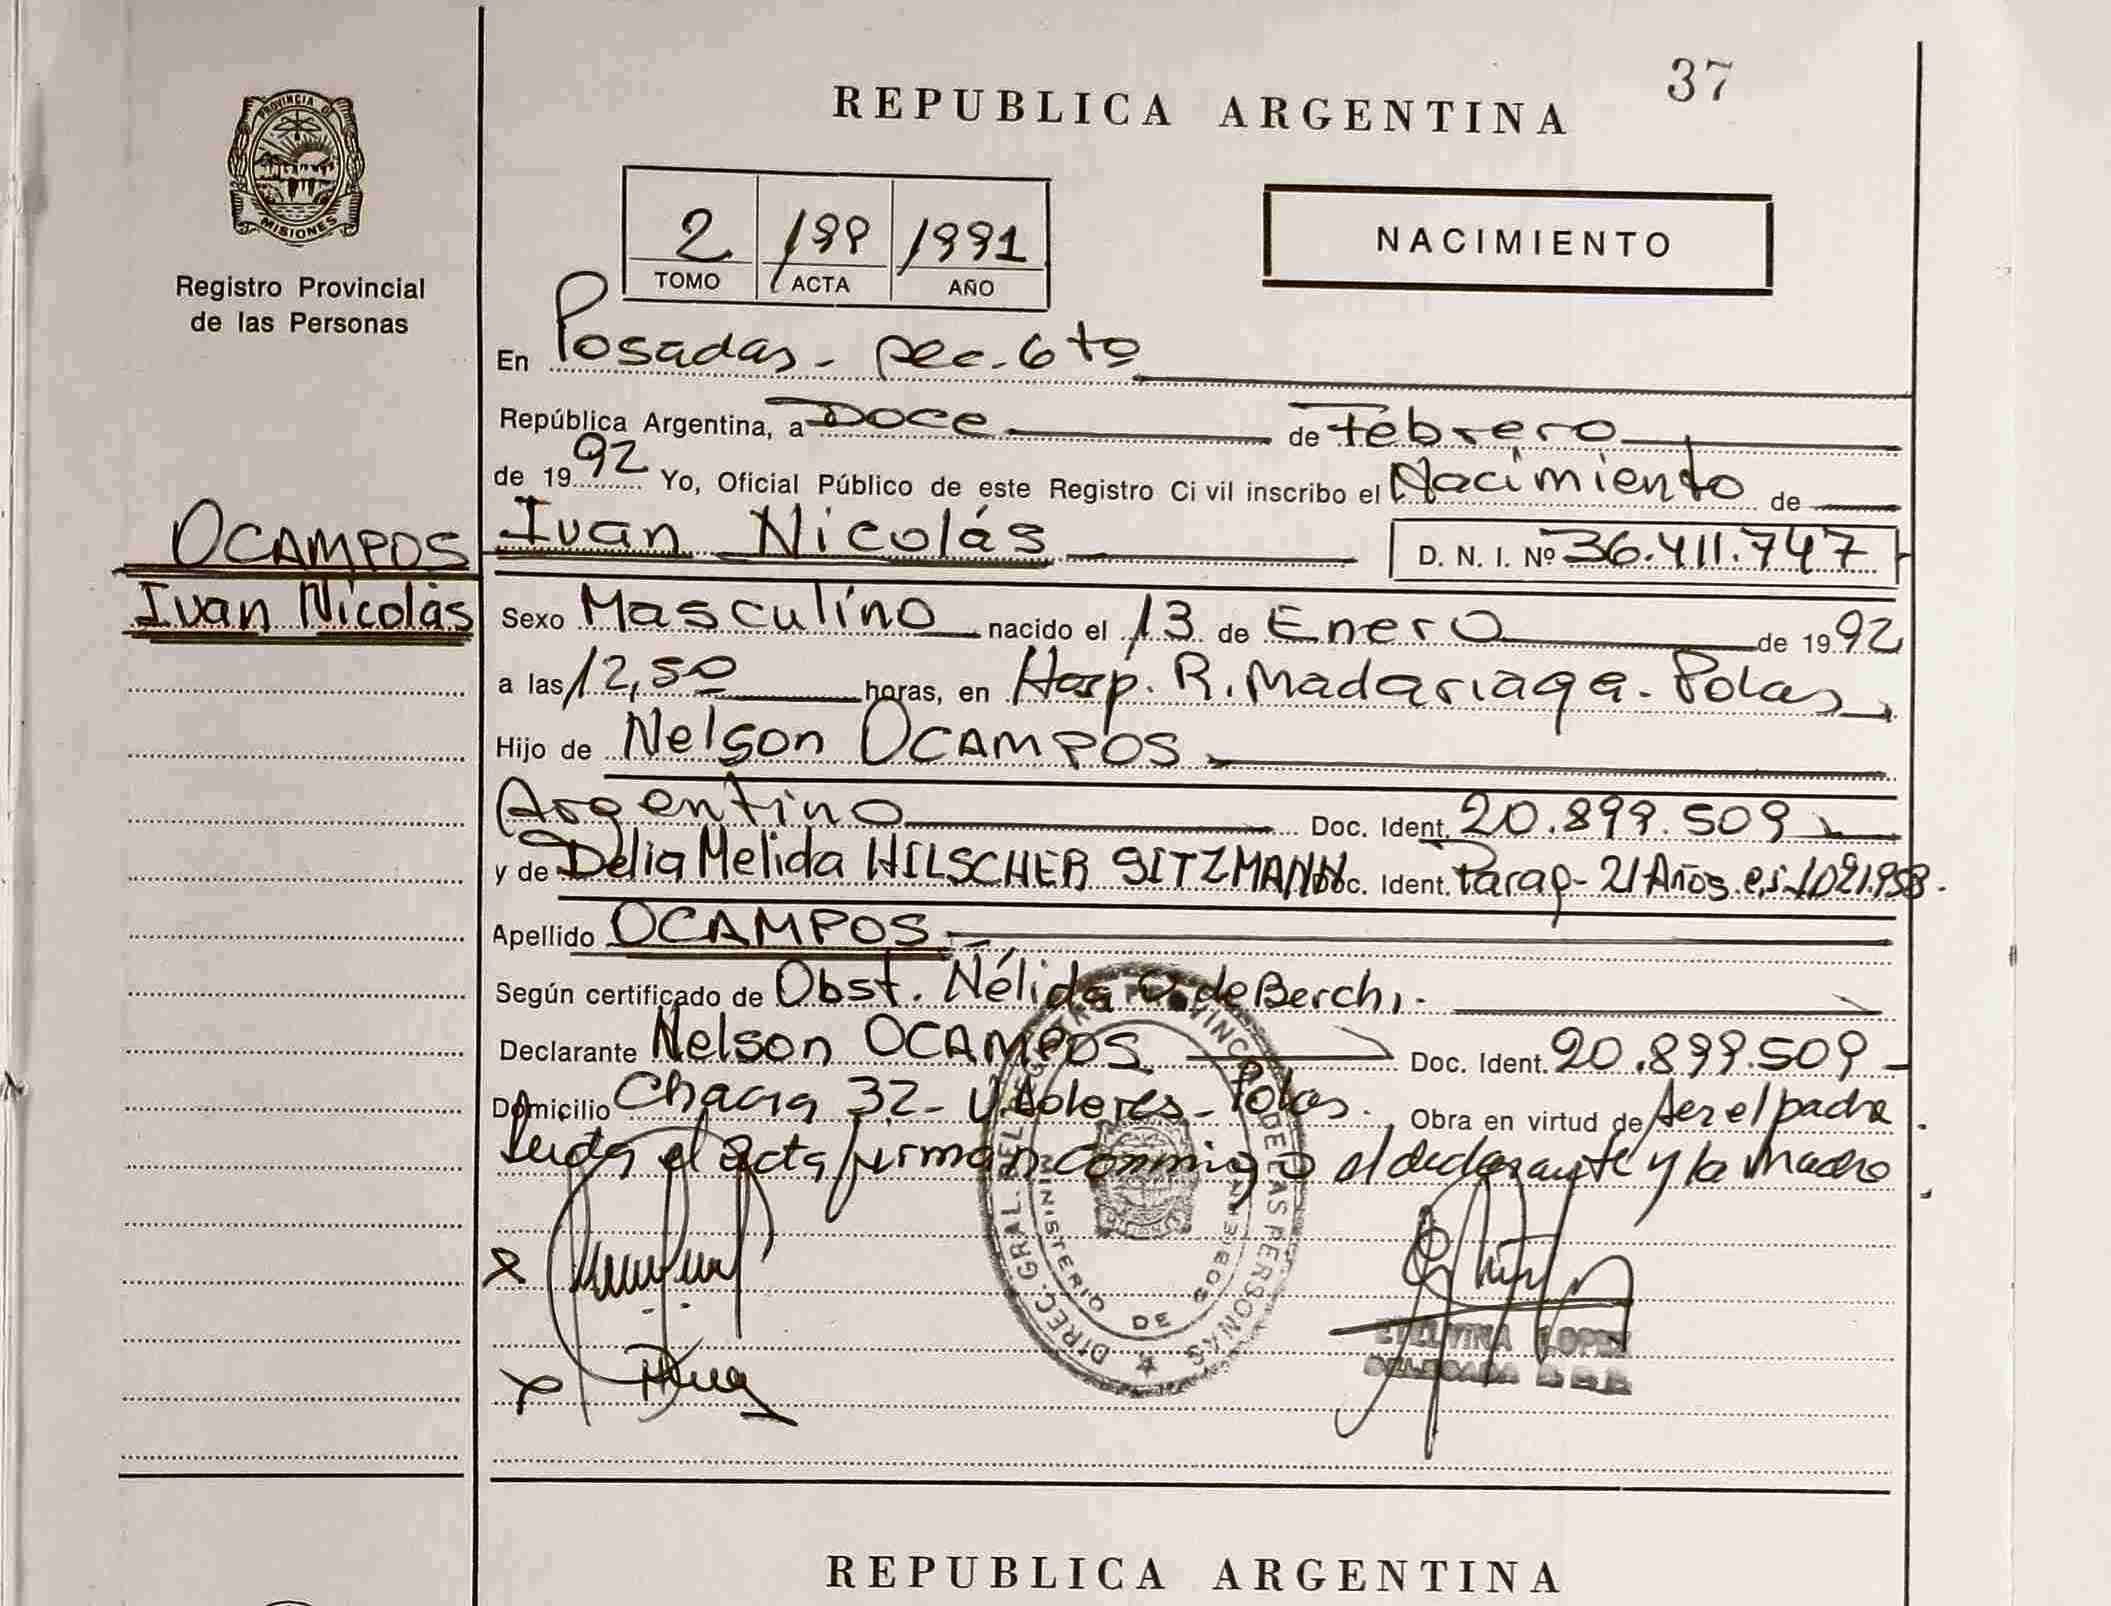 37
REPUBLICA ARGENTINA
PROVINCIA DE MISIONES
Registro Provincial
de las Personas
2 TOMO 199 ACTA 1991 AÑO
NACIMIENTO
En Posadas - sec. 6to
República Argentina, a Doce de Febrero
de 1992 Yo, Oficial Público de este Registro Civil inscribo el Nacimiento de
OCAMPOS Ivan Nicolás D. N. I. Nº 36.411.747
Ivan Nicolás
Sexo Masculino nacido el 13 de Enero de 1992
a las 12,50 horas, en Hosp. R. Madariaga - Pdas
Hijo de Nelson OCAMPOS
Argentino Doc. Ident. 20.899.509
y de Delia Melida HILSCHER SITZMANN Doc. Ident. Parag - 21 Años c.i. 1.021.958.
Apellido OCAMPOS
Según certificado de Obst. Nélida O. de Berchi.
Declarante Nelson OCAMPOS Doc. Ident. 20.899.509
Domicilio Chacra 32 - V. Dolores - Pdas. Obra en virtud de ser el padre.
Leida el acta firman conmigo el declarante y la madre.
DIREC. GRAL. DEL REGISTRO PROVINCIAL DE LAS PERSONAS
MINISTERIO DE GOBIERNO
ETELVINA LOPEZ
DELEGADA
REPUBLICA ARGENTINA